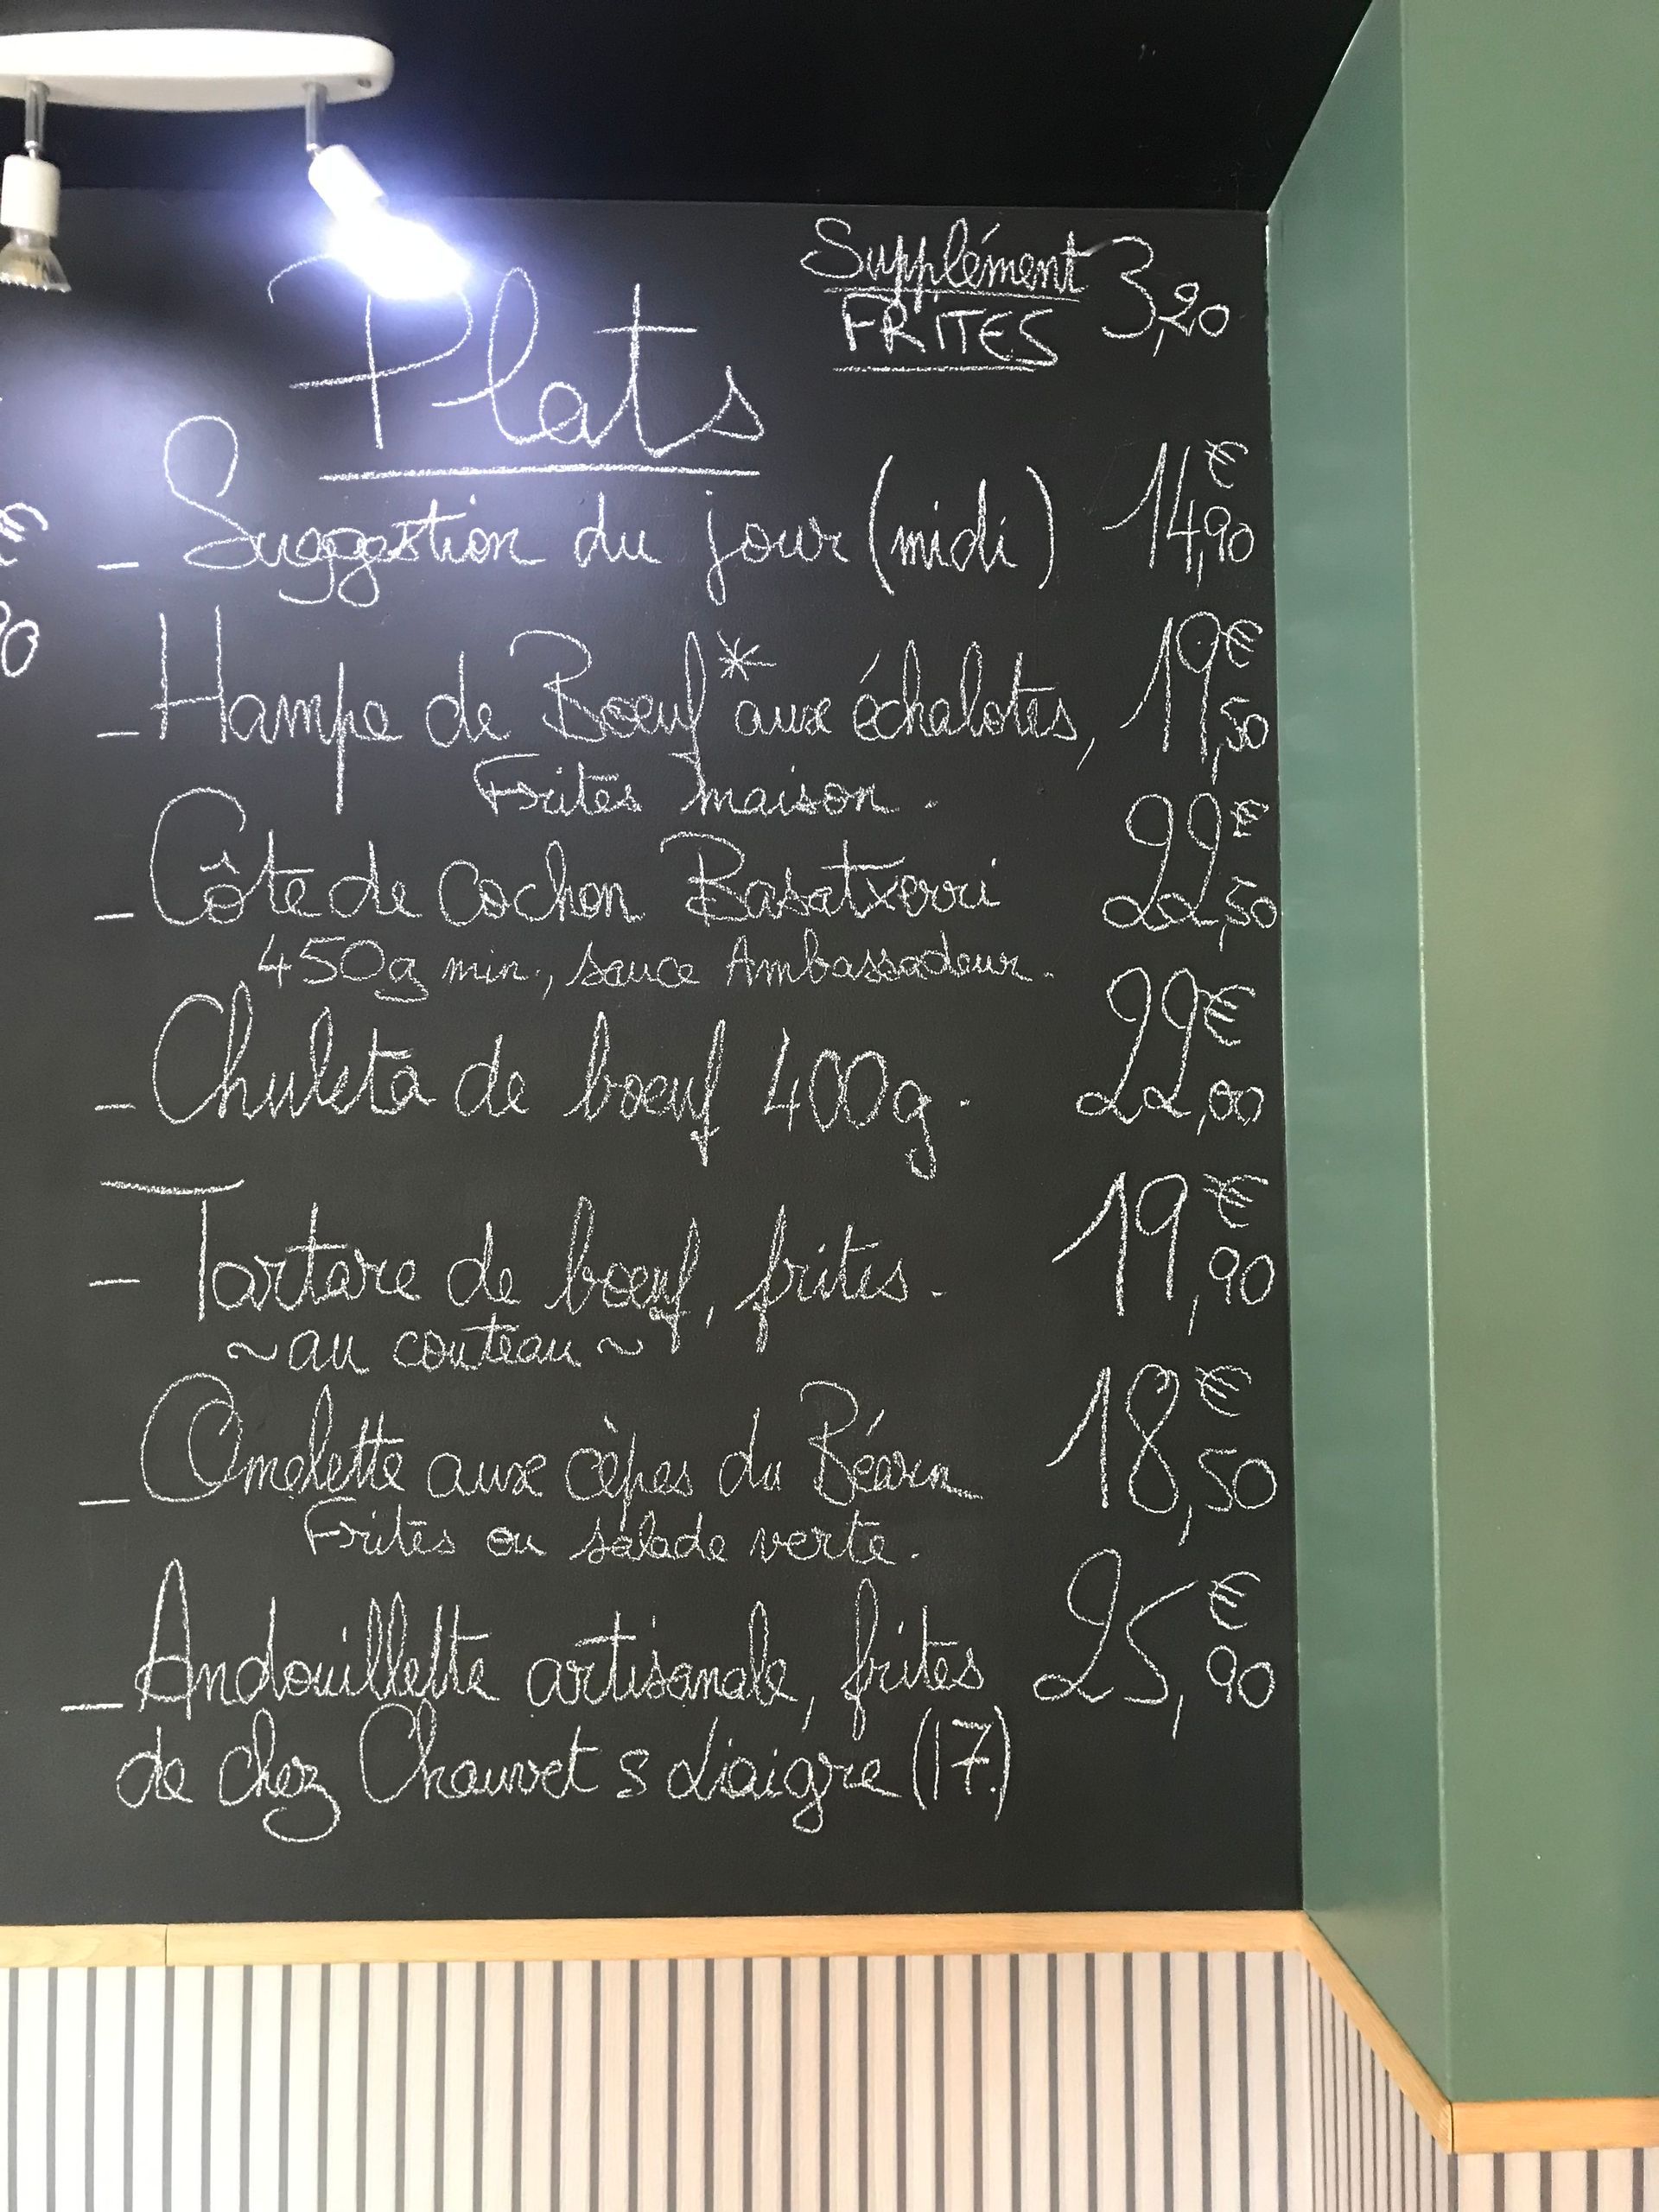 Supplément 3,20
FRITES
Plats
- Suggestion du jour (midi) 14,90€
- Hampe de Boeuf* aux échalotes, 19,50€
Frites maison.
- Côte de cochon Basatxerri 22,50€
450g min, sauce Ambassadeur.
- Chuleta de boeuf 400g. 22,00€
- Tartare de boeuf, frites. 19,90€
~ au couteau ~
- Omelette aux cèpes du Béarn 18,50€
Frites ou salade verte.
- Andouillette artisanale, frites 25,90€
de chez Chauvet s Liaigre (17.)
€
90